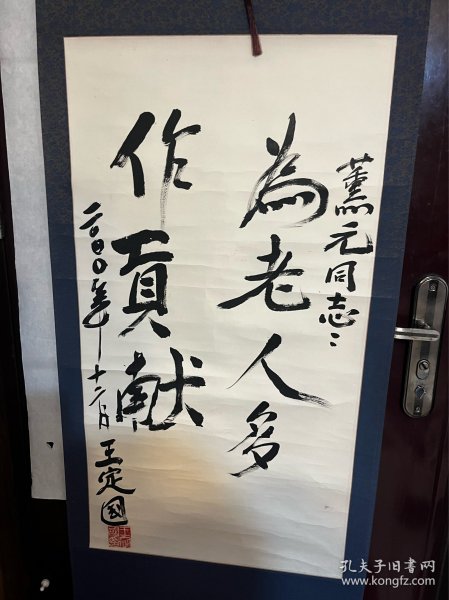 薰元同志：
為老人多
作貢献
二〇〇〇年十二月 王定國
孔夫子旧书网
www.kongfz.com